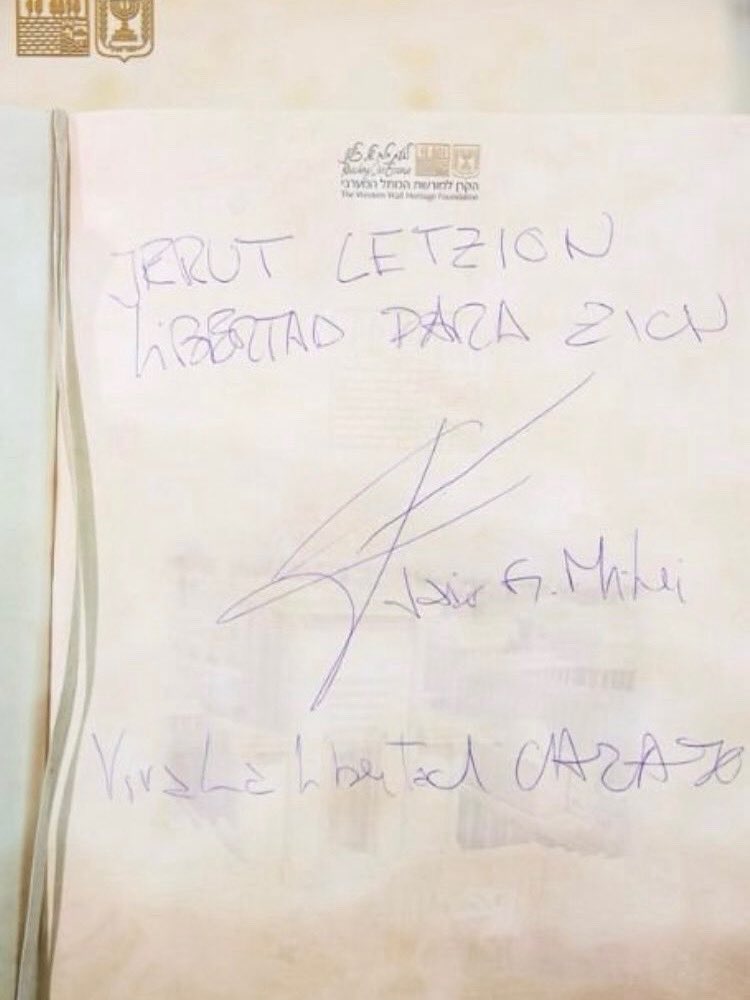 הקרן למורשת הכותל המערבי
The Western Wall Heritage Foundation
JERUT LETZION
LIBERTAD PARA ZION
Javier G. Milei
Viva La Libertad CARAJO